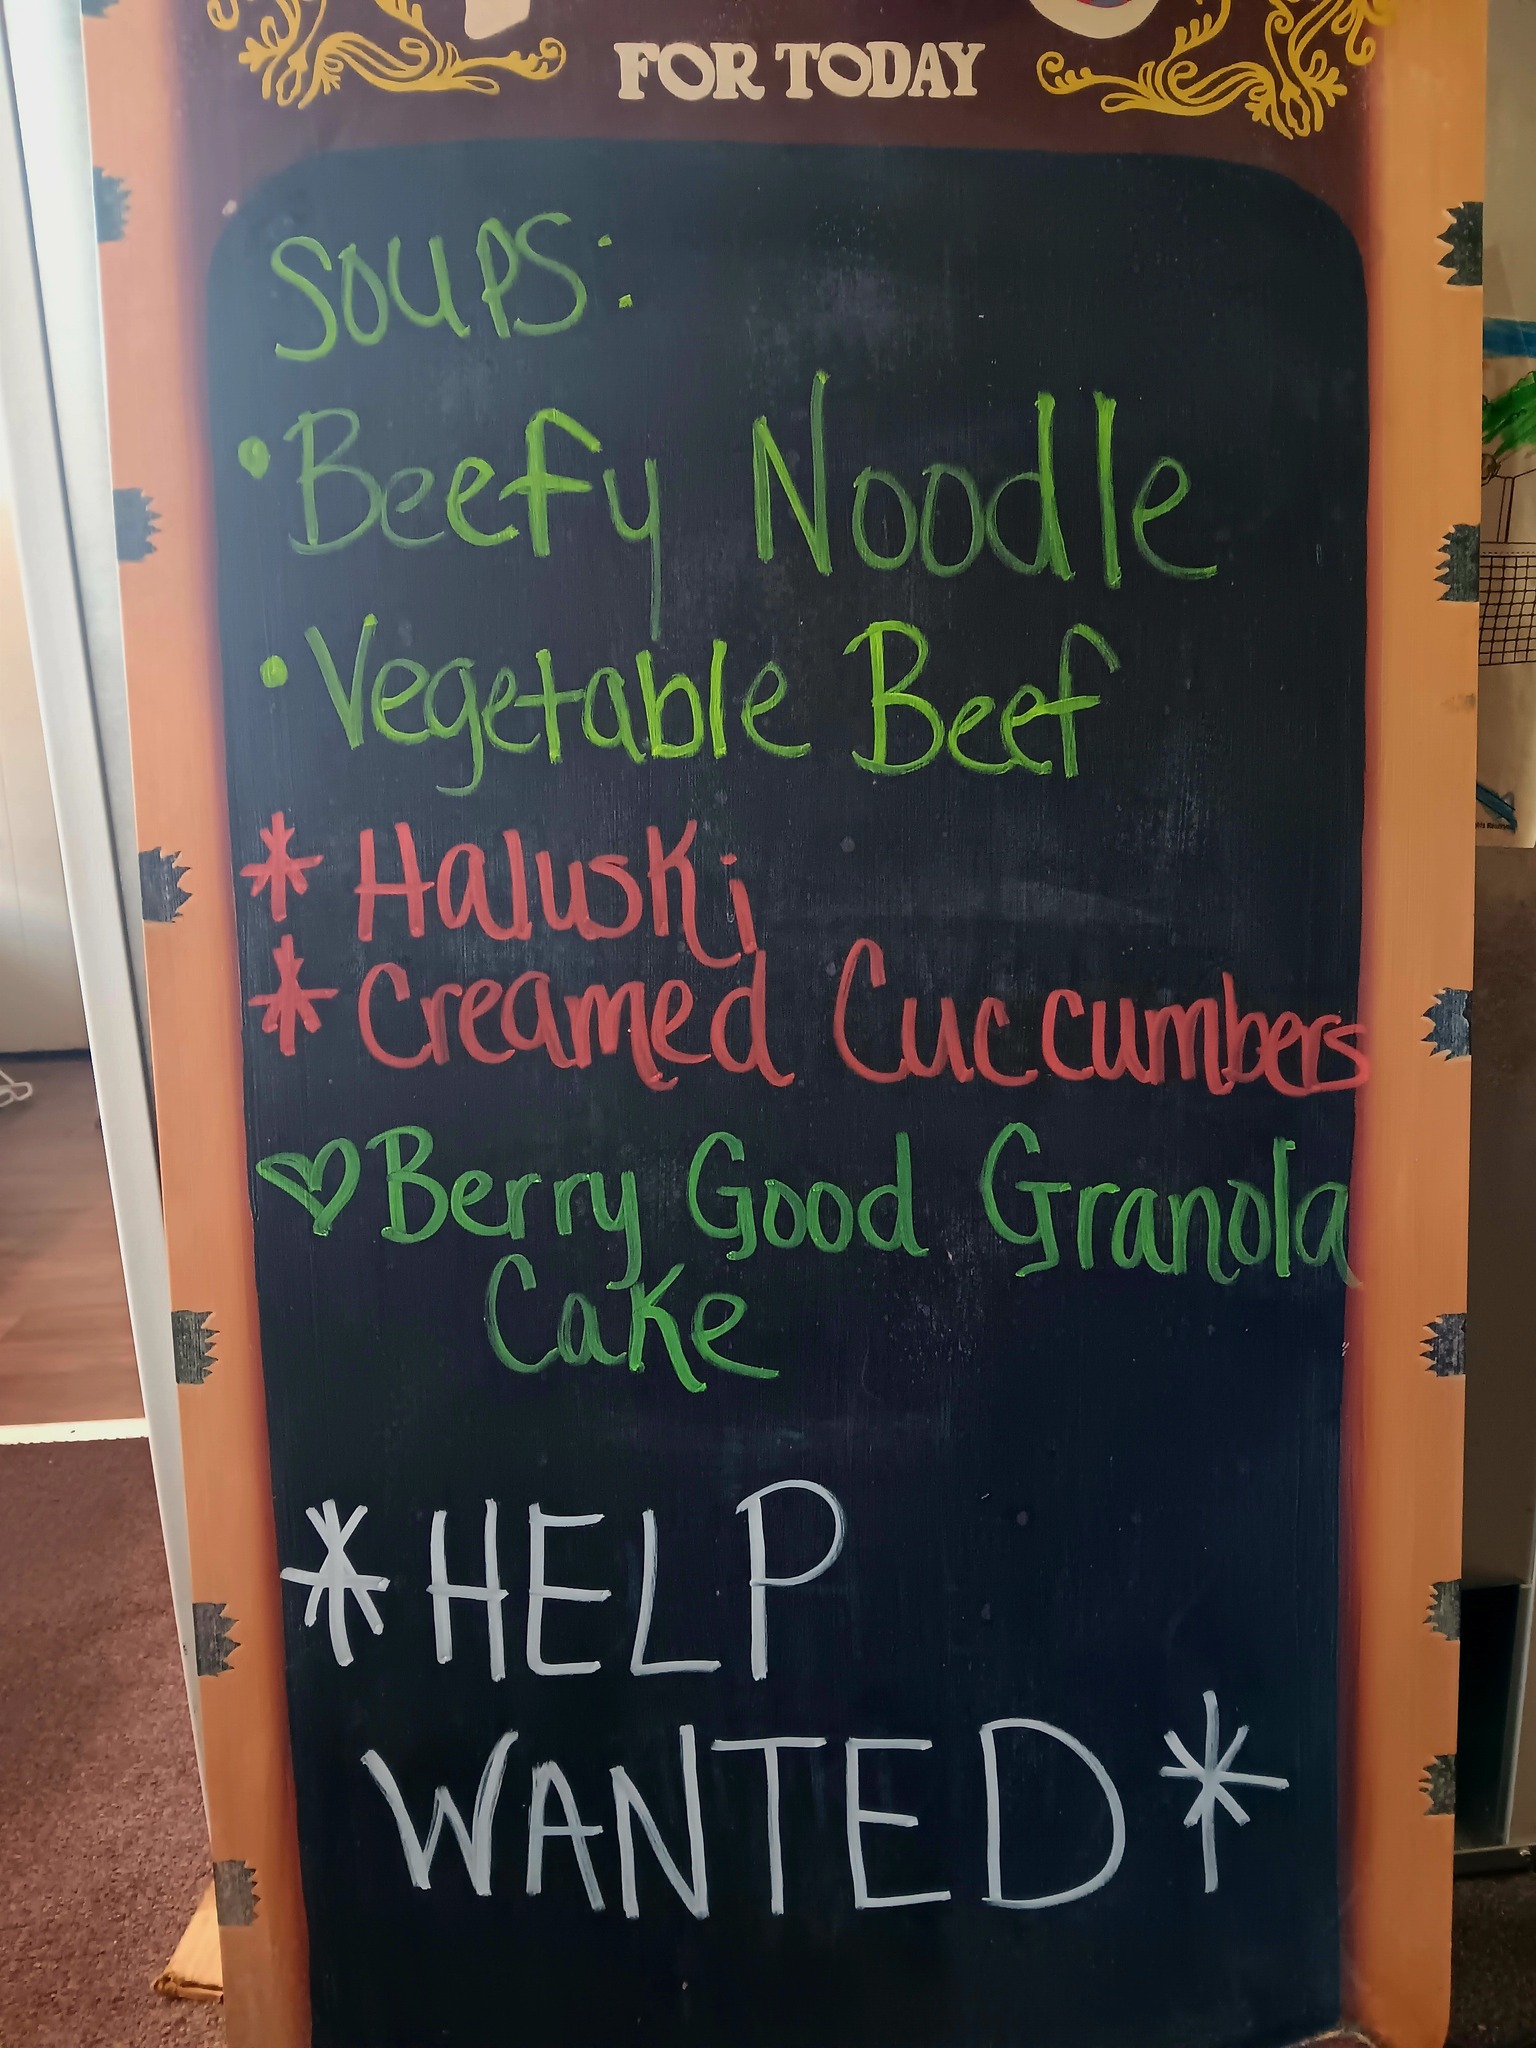 FOR TODAY
SOUPS:
• Beefy Noodle
• Vegetable Beef
* Haluski
* Creamed Cuccumbers
♡ Berry Good Granola
Cake
* HELP
WANTED *